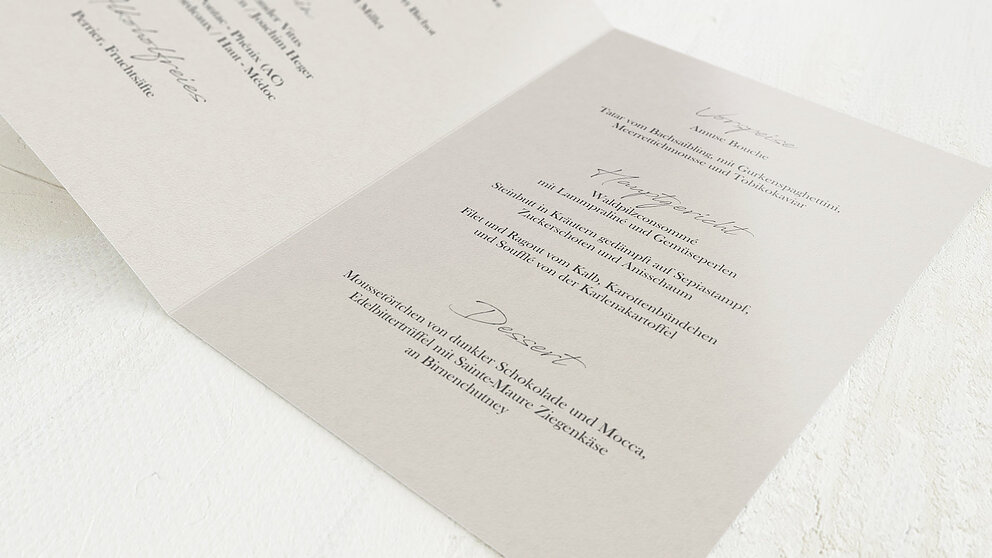 Vitus
/ Joachim Heger
Phénix (AC)
/ Haut - Médoc
Alkoholfreies
Perrier, Fruchtsäfte
Vorspeise
Amuse Bouche
Tatar vom Bachsaibling, mit Gurkenspaghettini,
Meerrettichmousse und Tobikokaviar
Hauptgericht
Waldpilzconsommé
mit Lammpraliné und Gemüseperlen
Steinbutt in Kräutern gedämpft auf Sepiastampf,
Zuckerschoten und Anisschaum
Filet und Ragout vom Kalb, Karottenbündchen
und Soufflé von der Karlenakartoffel
Dessert
Moussetörtchen von dunkler Schokolade und Mocca,
Edelbittertrüffel mit Sainte-Maure Ziegenkäse
an Birnenchutney